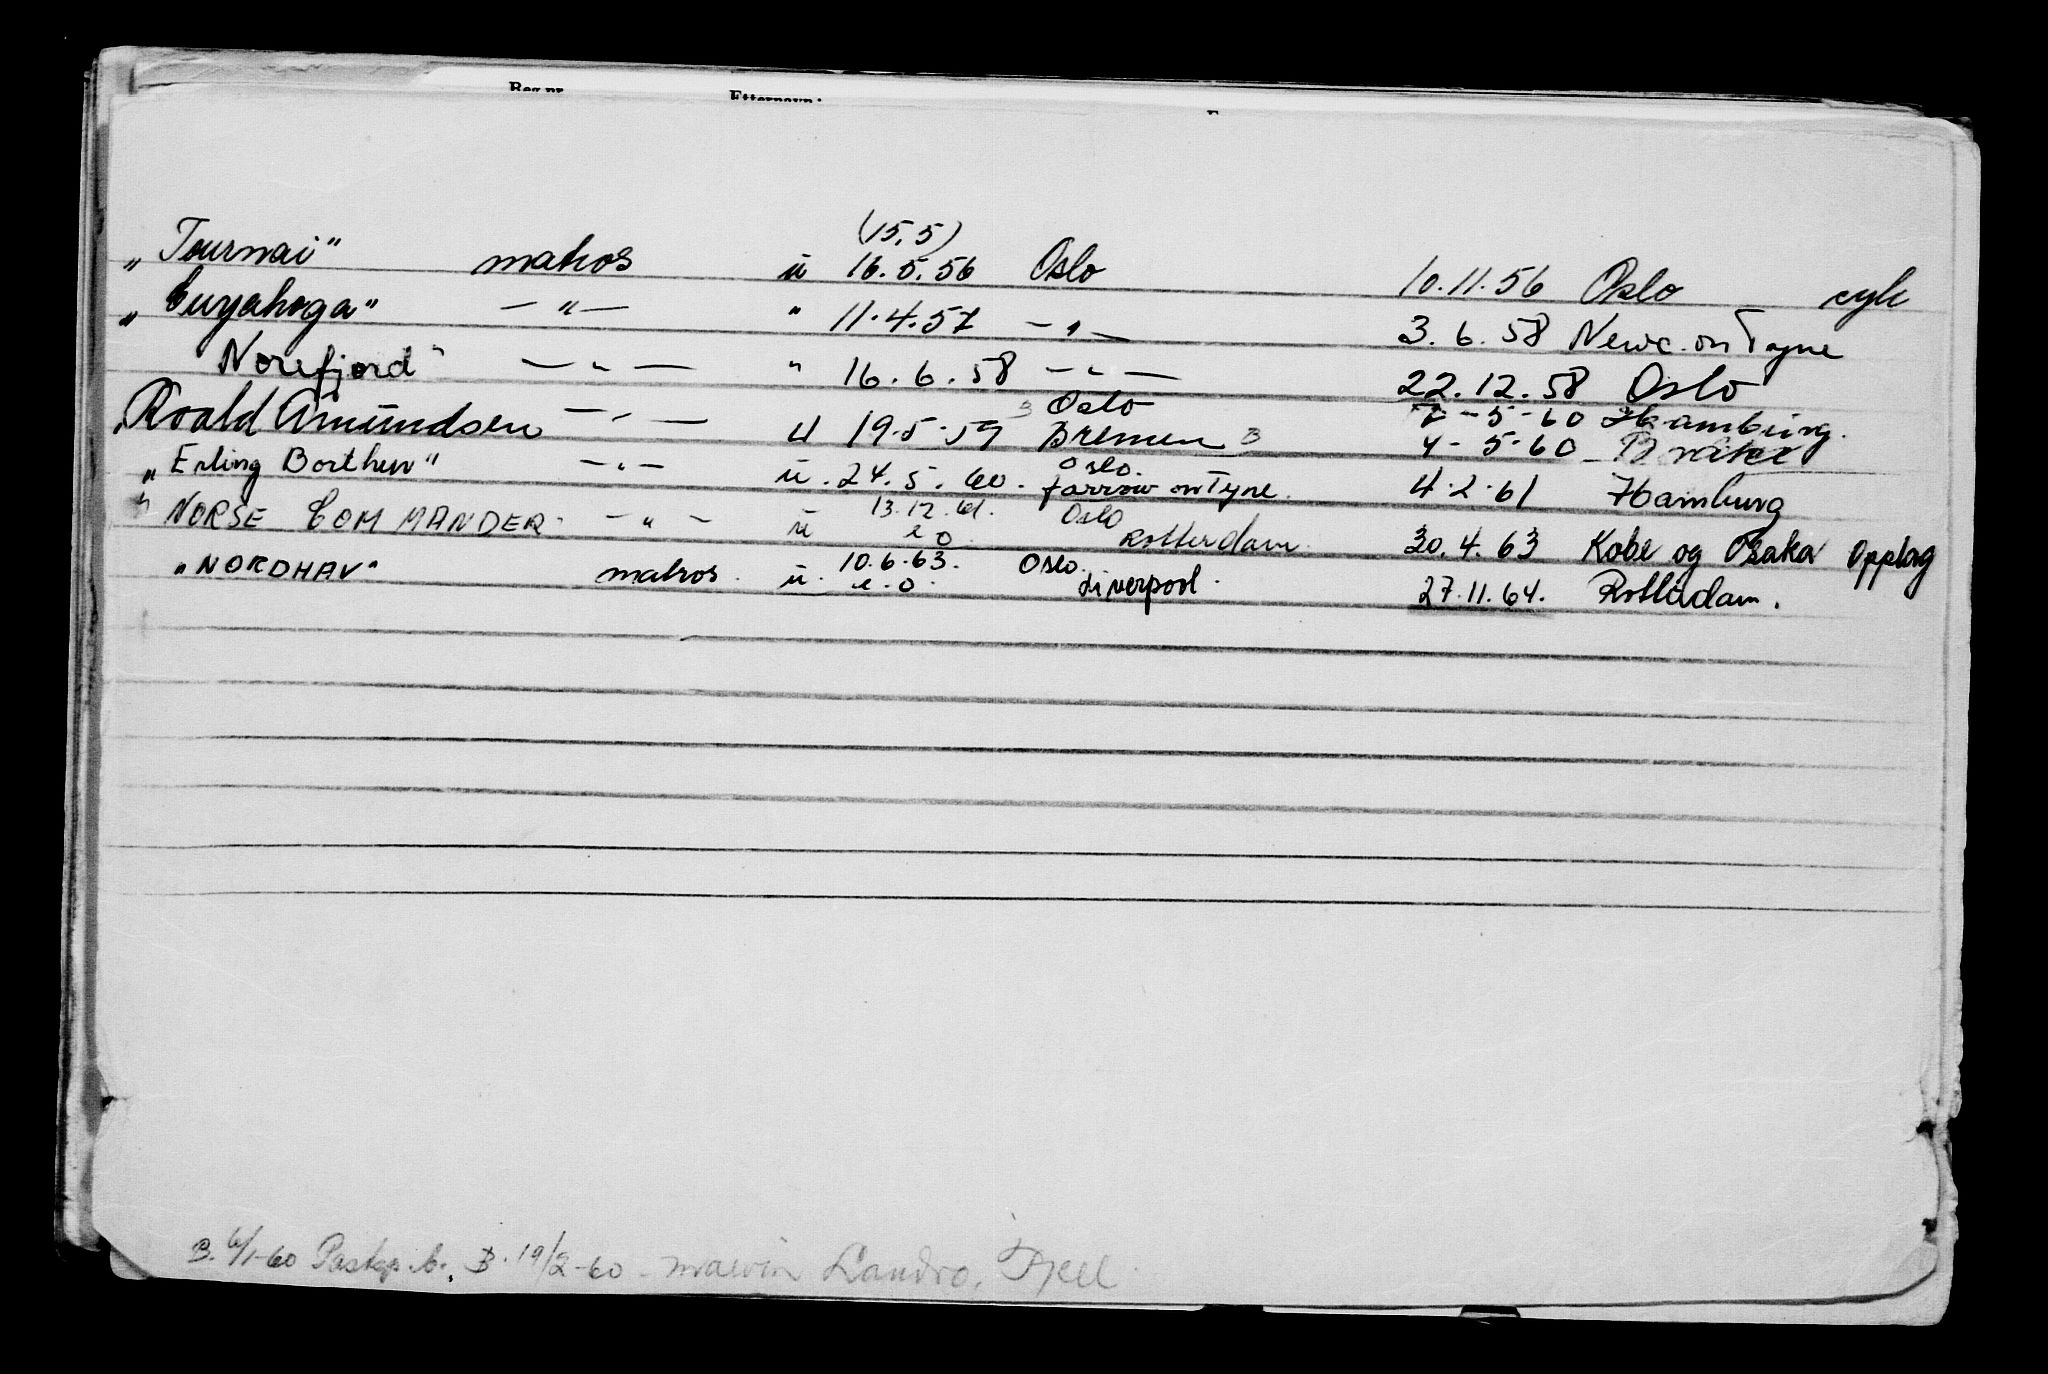 Reg.nr. Etternavn:
(15.5)
„Tournai" matros u 16.5.56 Oslo 10.11.56 Oslo syk
„Cuyahoga" —"— " 11.4.57 —"— 3.6.58 Newc. on Tyne
Norefjord" —"— " 16.6.58 —"— 22.12.58 Oslo
Oslo 5-60 Hamburg.
„Roald Amundsen —"— u 19.5.59 Bremen B 4-5-60 Brake
Oslo.
„Erling Borthen" —"— u. 24.5.60. Jarrow on Tyne. 4.2.61 Hamburg
13.12.61. Oslo
" NORSE COMMANDER" —"— u e o Rotterdam. 30.4.63 Kobe og Osaka Opplag
10.6.63. Oslo.
"NORDHAV" matros. u. e.o. Liverpool. 27.11.64. Rotterdam.
B. 6/1-60 B. 19/2-60 - Landro, Fjell